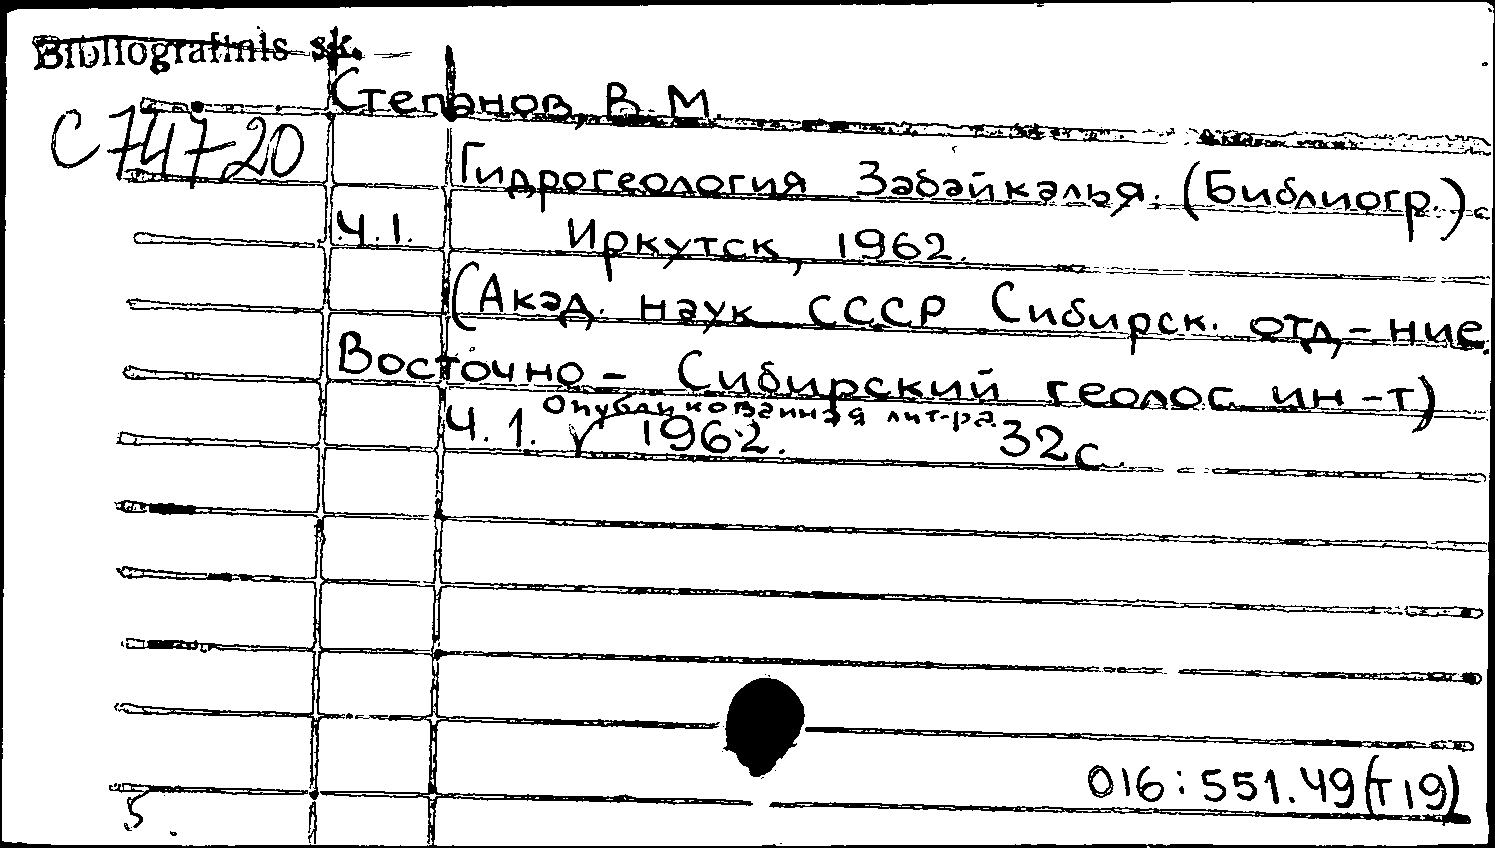 Bibliografinis sk.
Степанов, В. М.
С 74720
Гидрогеология Забайкалья. (Библиогр.).
Ч.1. Иркутск, 1962.
(Акад. наук СССР Сибирск. отд-ние.
Восточно-Сибирский геолог. ин-т)
Опубликованная лит-ра.
Ч. 1. 1962. 32с.
016:551.49(Т19)
5.